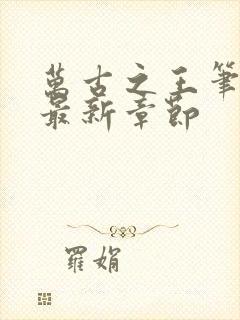 萬古之王筆
最新章節
羅娟